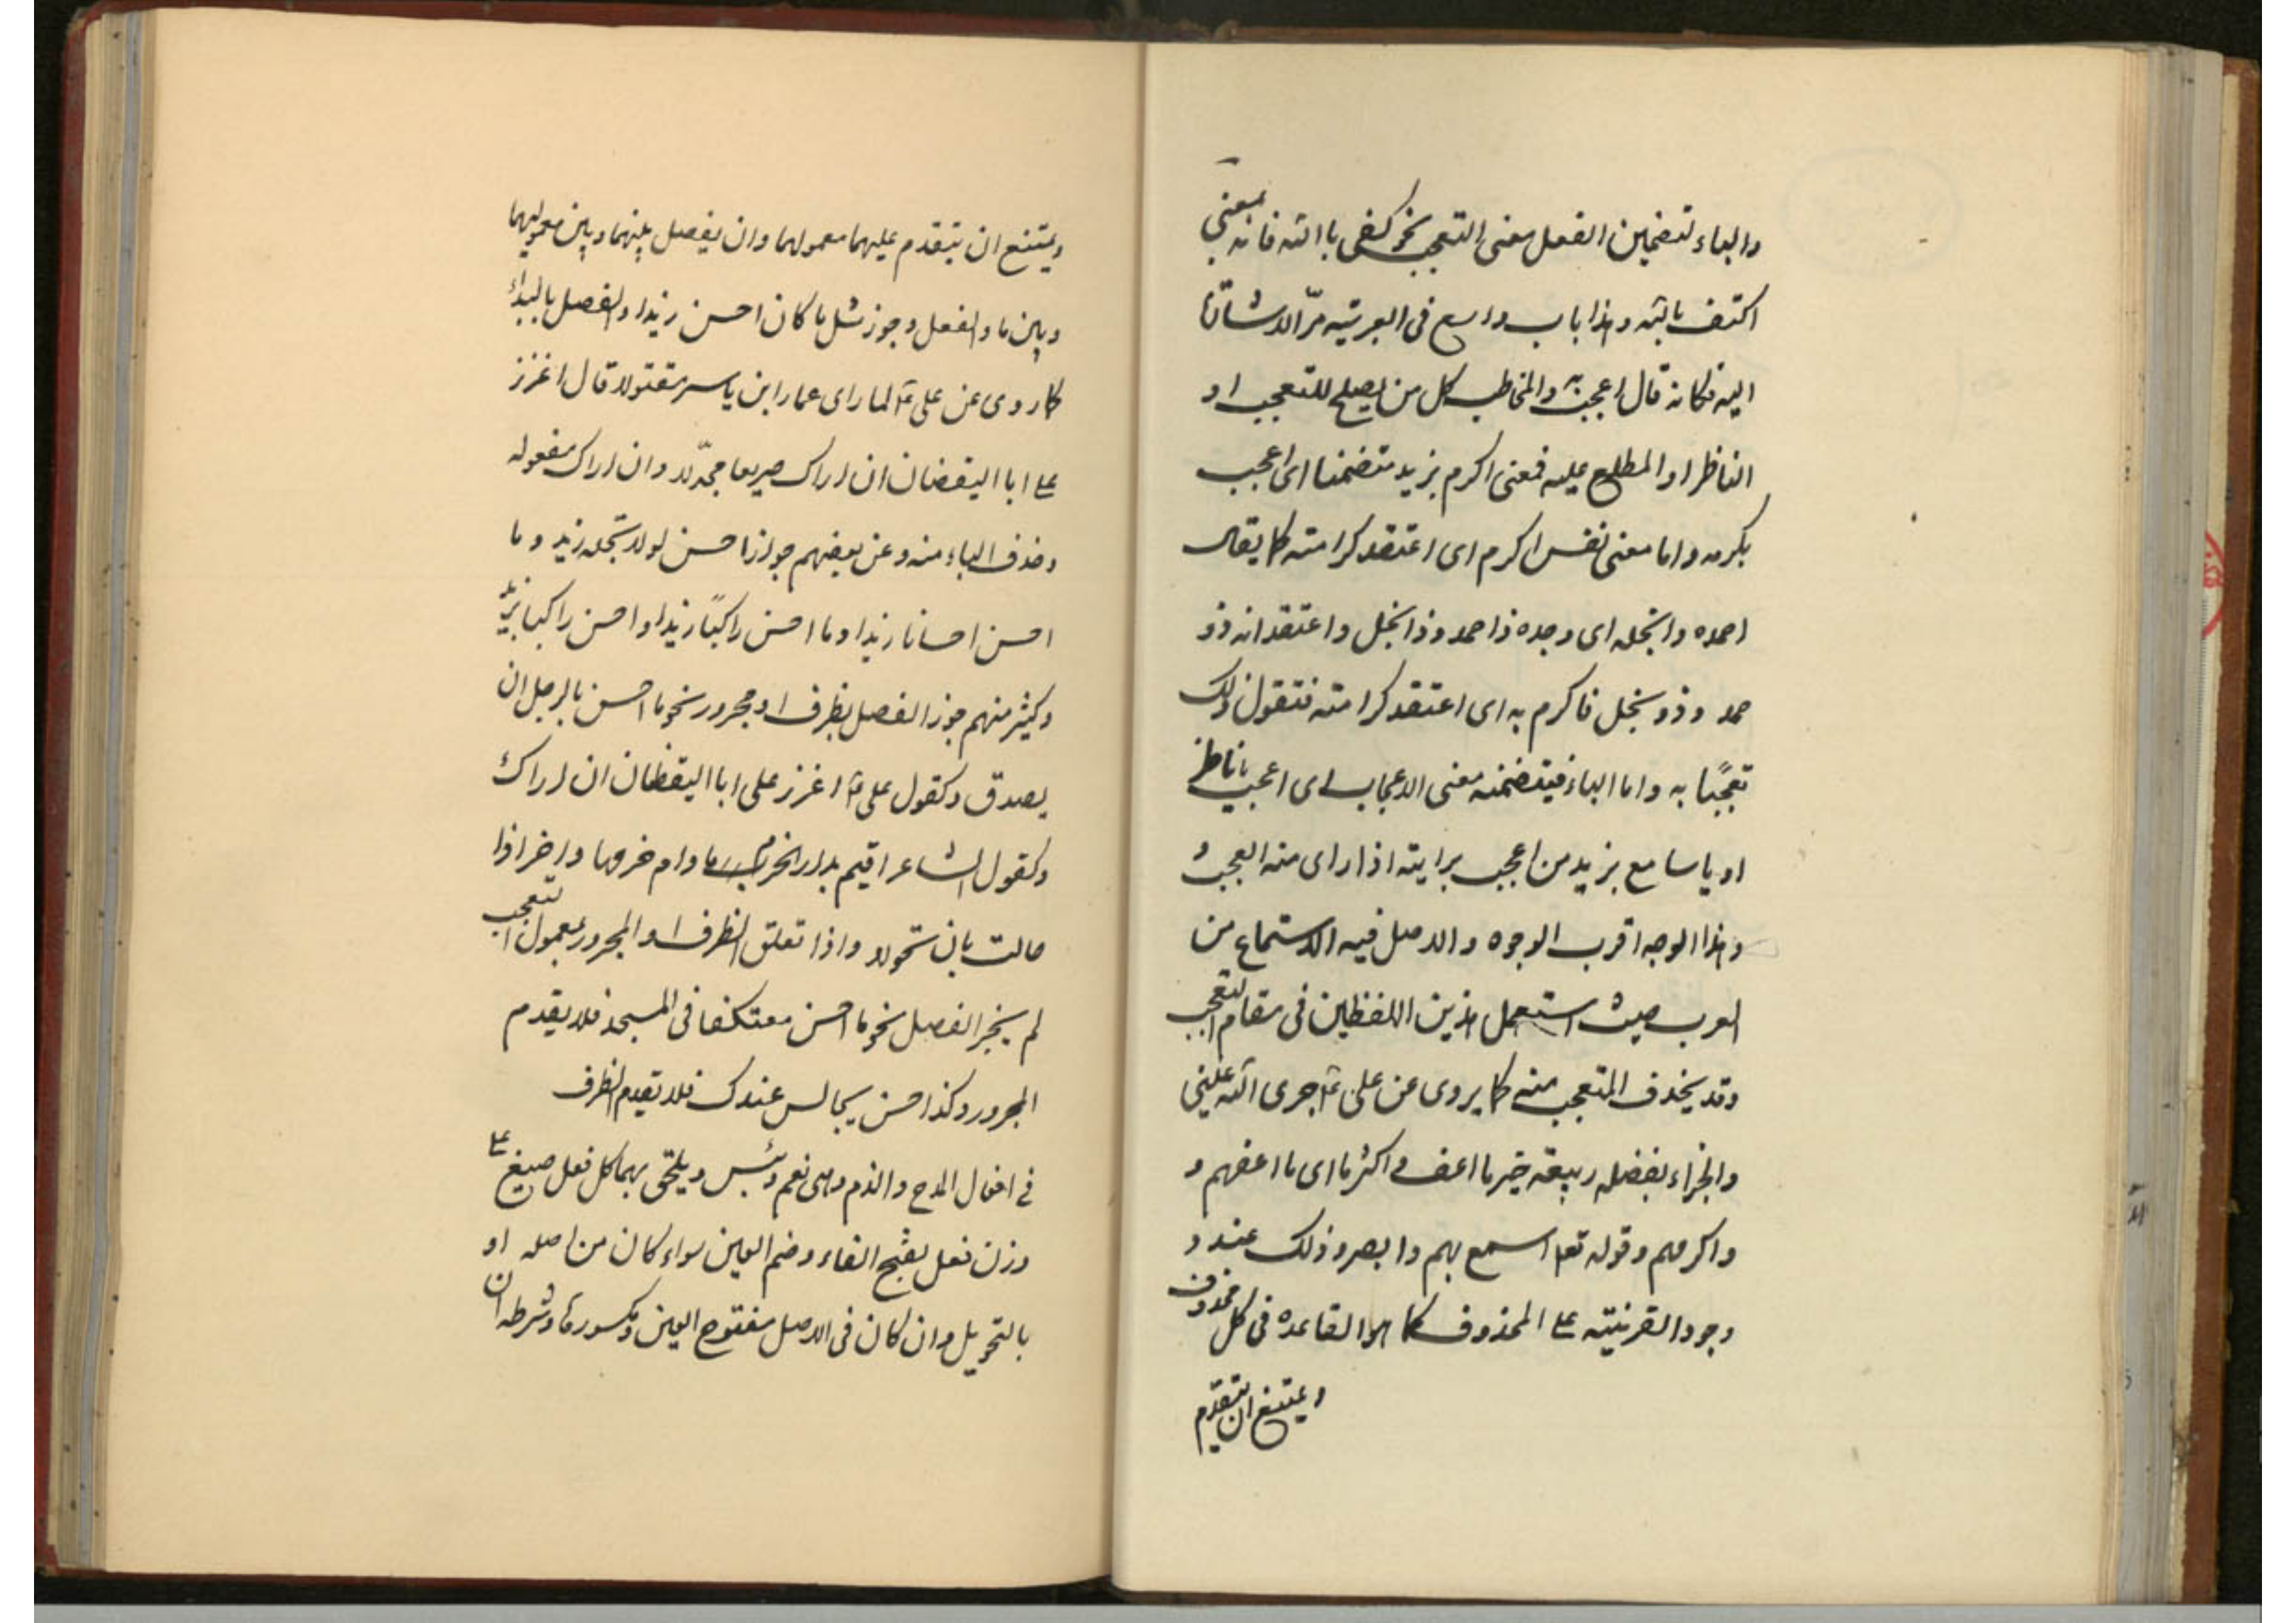 والباء لتضمين الفعل معنى التعجب نحو كفى باالله فانه بمعنى
اكتف بالله وهذا باب واسع فى العربية مرّ الاشارة
اليه فكانه قال اعجب به والمخاطب كل من يصلح للتعجب او
الناظر او المطلع عليه فمعنى اكرم بزيد متضمنا اى اعجب
بكرمه واما معنى نفس اكرم اى اعتقد كرامته كما يقال
احمده وانجله اى وجده ذا حمد وذا نجل واعتقد انه ذو
حمد وذو نجل فاكرم به اى اعتقد كرامته فتقول ذلك
تعجّبًا به واما الباء فيتضمنه معنى الاعجاب اى اعجب ياناظر
او ياسامع بزيد من اعجب برايته اذا راى منه العجب و
وهذا الوجه اقرب الوجوه والاصل فيه الاستماع من
العرب حيث استعمل هذين اللفظين فى مقام التعجب
وقد يحذف المتعجب منه كما يروى عن على جزى الله عنى
والجزاء بفضله ربيعة خيرا ما اعف و اكرما اى ما اعفهم و
واكرمهم وقوله تعا اسمع بهم وابصر وذلك عند و
وجود القرينية على المحذوف كما هو القاعدة فى كل محذوف
ويمتنع ان يتقدم
ويمتنع ان يتقدم عليهما معمولهما وان يفصل بينهما وبين معموليهما
وبين ما والفعل وجوز مثل ما كان احسن زيدا والفصل بالنداء
كما روى عن على لما راى عمار ابن ياسر مقتولا قال اعزز
على ابا اليقضان ان اراك صريعا مجدّلا وان اراك مفعوله
وحذف الباء منه وعن بعضهم جواز احسن لولا بخله زيد وما
احسن احسانا زيدا وما احسن راكبًا زيدا واحسن راكبا بزيد
وكثير منهم جوز الفصل بظرف او مجرور نحو ما احسن بالرجل ان
يصدق وكقول على اعزز على ابا اليقظان ان اراك
وكقول الشاعر اقيم بدار الحزم ما دام حزمها واحر اذا
حالت بان اتحولا واذا تعلق الظرف او المجرور بمعمول التعجب
لم يجز الفصل نحو ما احسن معتكفا فى المسجد فلا يقدم
المجرور وكذا احسن بجالس عندك فلا تقدم الظرف
فى افعال المدح والذم وهى نعم وبئس ويلحق بهما كل فعل صيغ على
وزن فعل بفتح الفاء وضم العين سواء كان من اصله او
بالتحويل وان كان فى الاصل مفتوح العين ومكسورها وشرطه ان